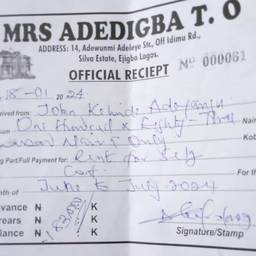 MRS ADEDIGBA T. O
ADDRESS: 14, Adewunmi Adeleye Str., Off Idimu Rd.,
Silva Estate, Ejigba Lagos.
OFFICIAL RECIEPT Nº 000061
18-01 2024
ived from: John Kehinde
um One Hundred & Eighty-Three Nair
Naira Only Kob
g Part/Full Payment for: Rent for Self
Cont. For th
nth of June to July 2024
vance N 183,000 K
ears N K
lance N K
Signature/Stamp